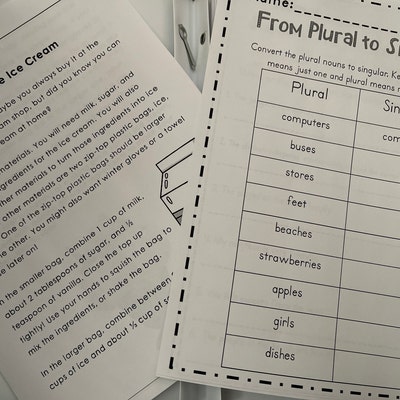 Ice Cream
maybe you always buy it at the
cream shop, but did you know you can
cream at home?
materials. You will need milk, sugar, and
ingredients for the ice cream. You will also
other materials to turn those ingredients into ice
other materials are two zip top plastic bags, ice,
One of the zip-top plastic bags should be larger
the other. You might also want winter gloves or a towel
later on!
In the smaller bag, combine 1 cup of milk,
about 2 tablespoons of sugar, and ½
teaspoon of vanilla. Close the top up
tightly! Use your hands to squish the bag to
mix the ingredients, or shake the bag.
In the larger bag, combine between
cups of ice and about ⅓ cup of
Name:
From Plural to Si
Convert the plural nouns to singular. Ke
means just one and plural means m
Plural
Sin
computers
com
buses
stores
feet
beaches
strawberries
apples
girls
dishes